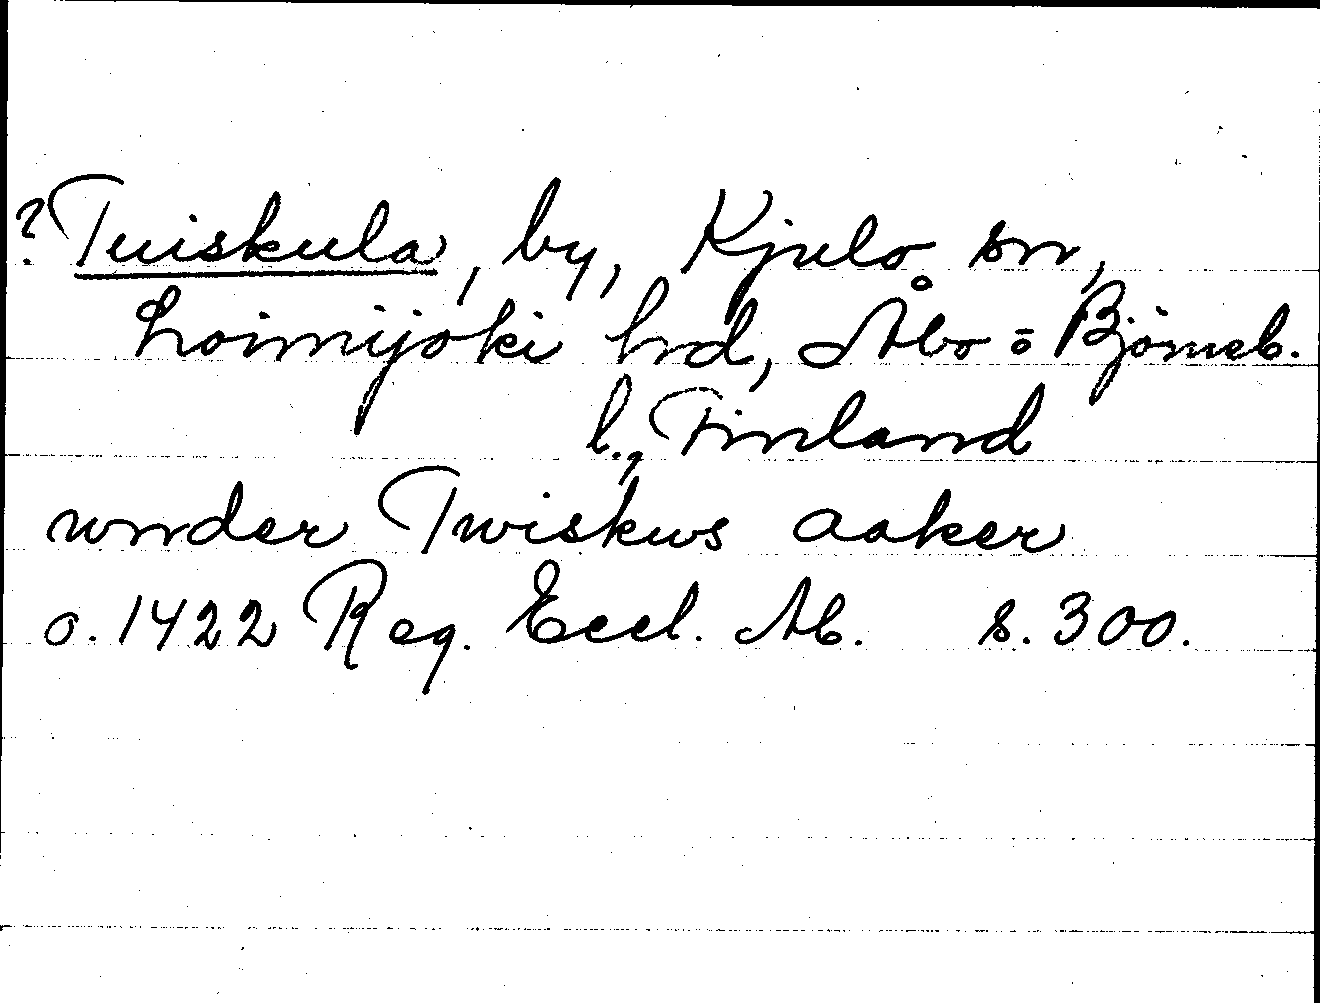 ? Tuiskula, by, Kjulo sn,
Loimijoki hrd, Åbo = Björneb.
l., Finland
wnder Twiskws aaker
o. 1422 Reg. Eccl. Ab. s. 300.